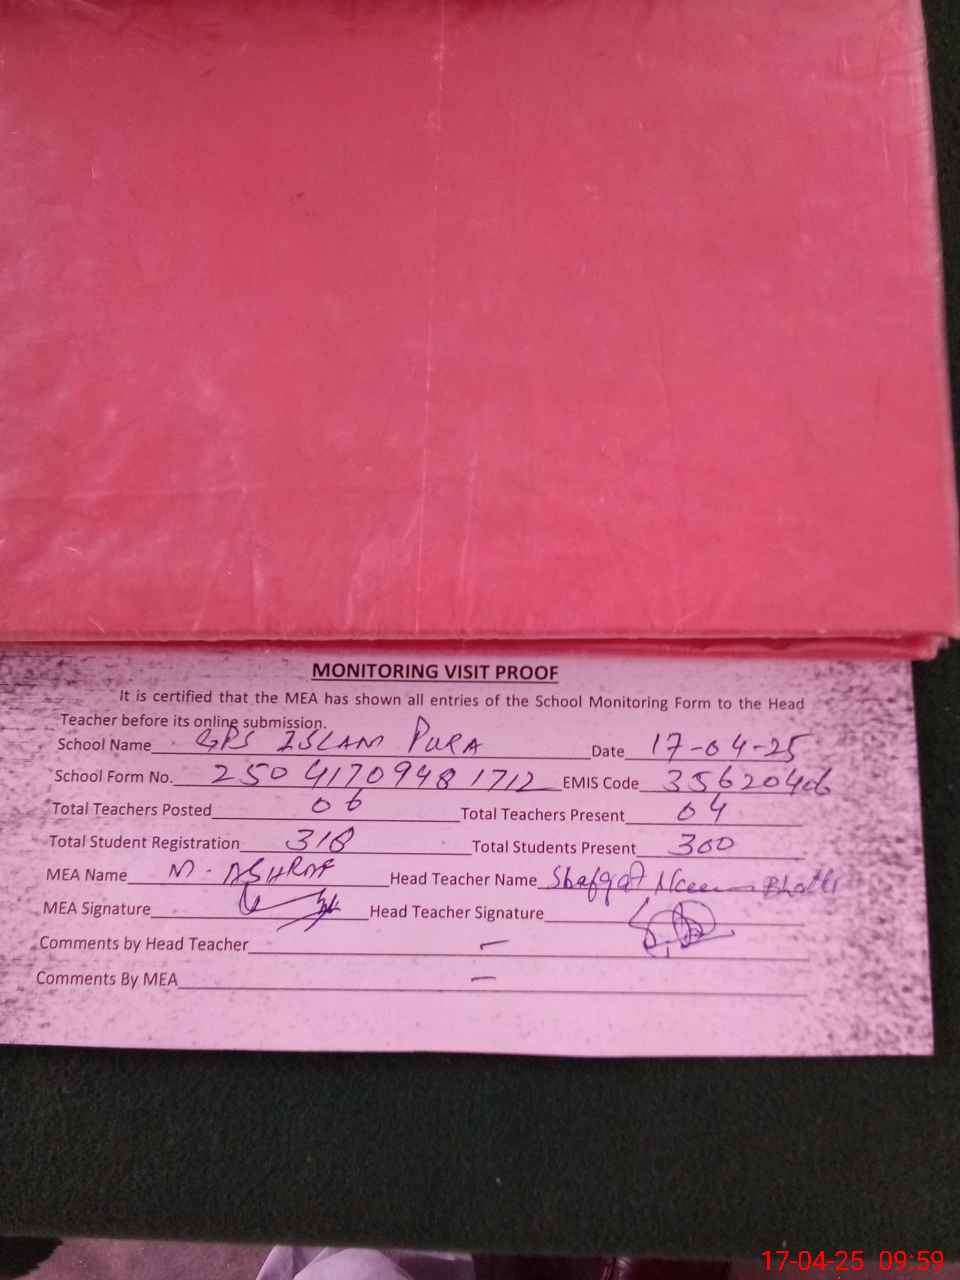 MONITORING VISIT PROOF
It is certified that the MEA has shown all entries of the School Monitoring Form to the Head
Teacher before its online submission.
School Name GPS ISLAM PURA Date 17-04-25
School Form No. 2504170948 1712 EMIS Code 35620406
Total Teachers Posted 06 Total Teachers Present 04
Total Student Registration 318 Total Students Present 300
MEA Name M. ASHRAF Head Teacher Name Shafqat Naeem Bhatti
MEA Signature Head Teacher Signature
Comments by Head Teacher —
Comments By MEA —
17-04-25 09:59